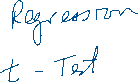 Regression
t - Test